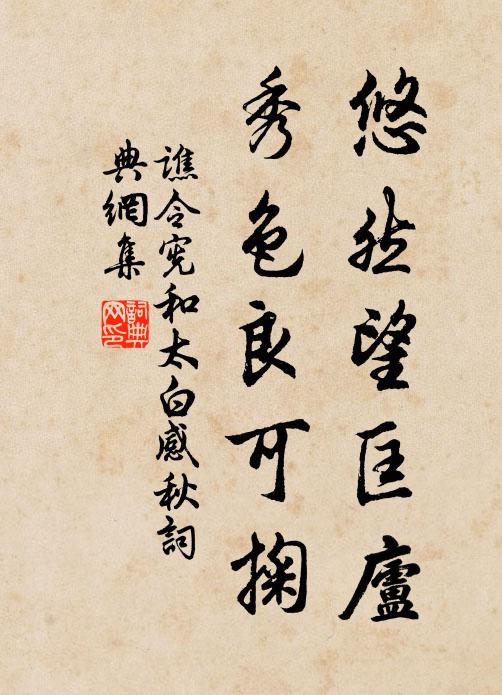 悠然望匡廬
秀色良可掬
譙令憲和太白感秋詞
典網集
詞典網印